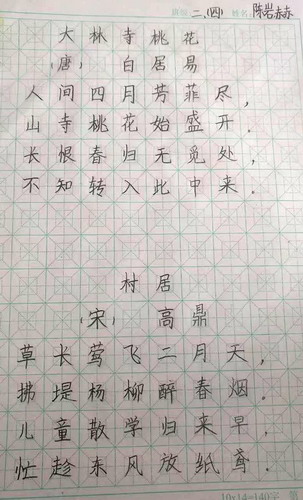 班级 二、(四) 姓名: 陈岩赫
大林寺桃花
(唐) 白居易
人间四月芳菲尽,
山寺桃花始盛开.
长恨春归无觅处,
不知转入此中来.
村居
(宋) 高鼎
草长莺飞二月天,
拂堤杨柳醉春烟.
儿童散学归来早,
忙趁东风放纸鸢.
10x14=140字